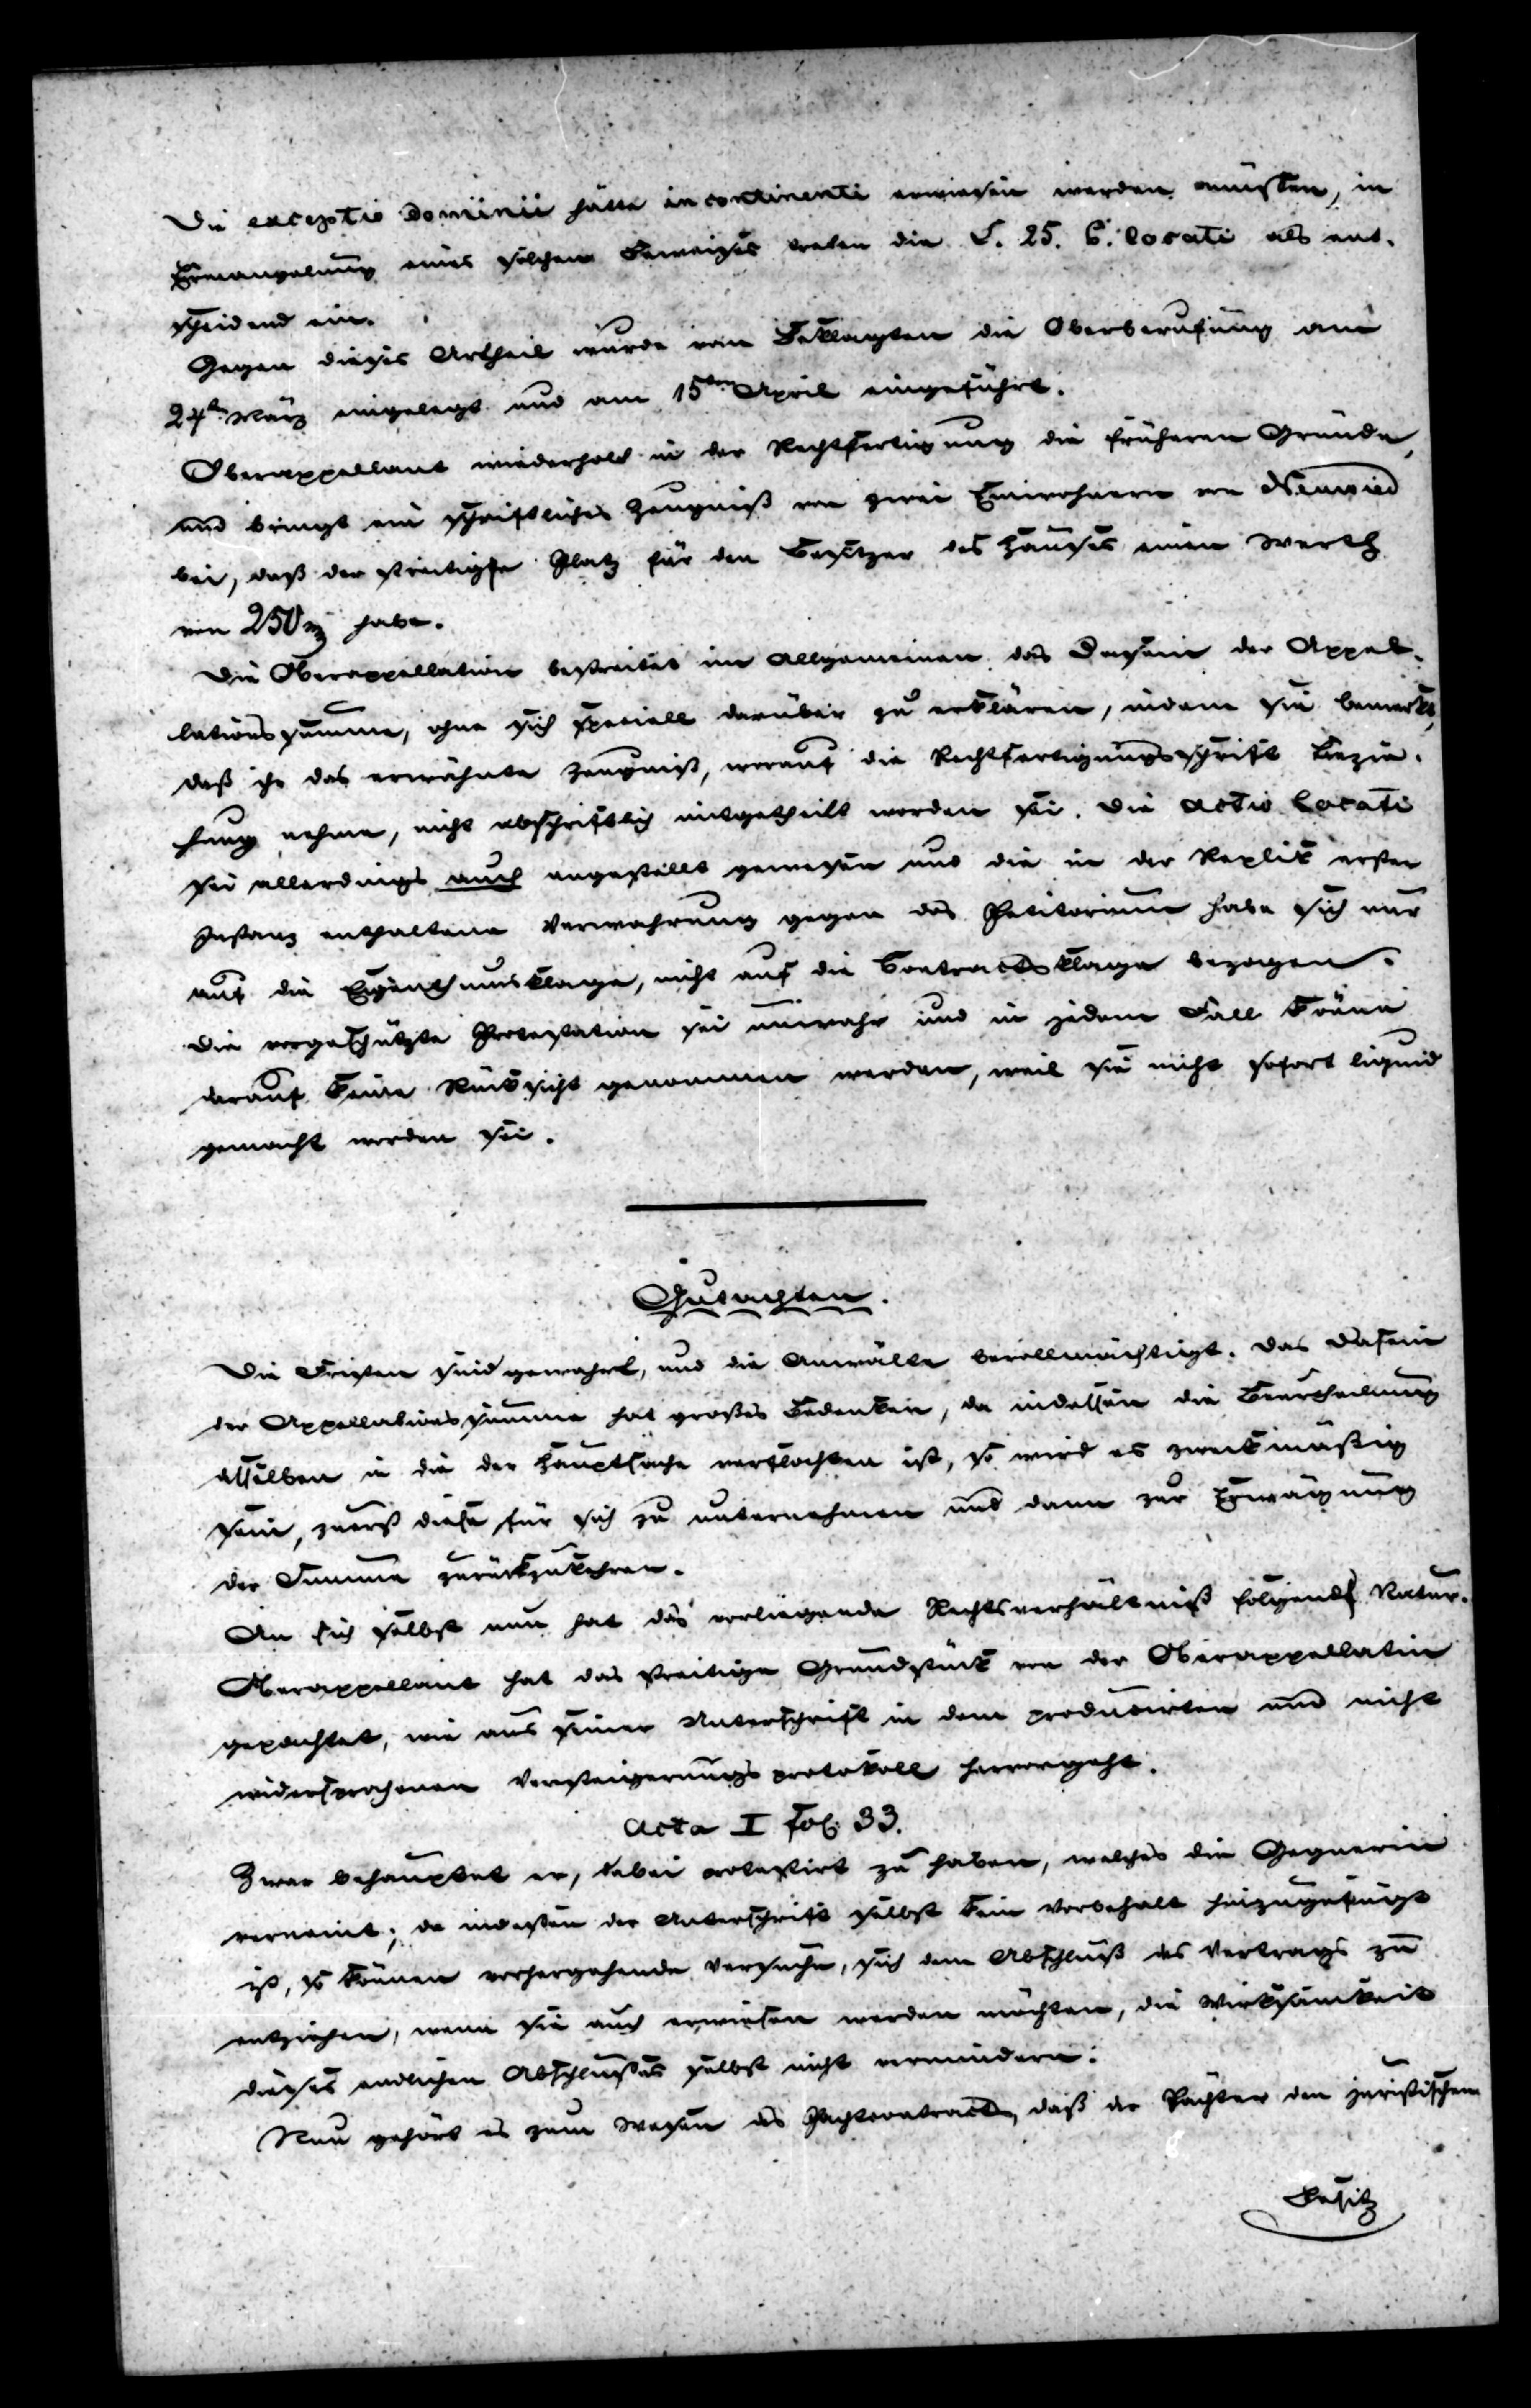 Die exceptio dominii hätte in continenti erwiesen werden müssen, in
Ermangelung eines solchen Beweises treten die L. 25. C. locati als ent-
scheidend ein.
Gegen dieses Urtheil wurde vom Beklagten die Oberberufung am
24t. März eingelegt und am 15ten April eingeführt.
Oberappellant wiederholt in der Rechtfertigung die früheren Gründe,
und bringt ein schriftliches Zeugniß von zwei Einwohnern von Neuwied
bei, daß der streitige Platz für den Besitzer des Hauses einen Werth
von 250 habe.
Die Oberappellatin bestreitet im Allgemeinen das Daseyn der Appel-
lationssumme, ohne sich speciell darüber zu erklären, indem sie bemerkt,
daß ihr das erwähnte Zeugniß, worauf die Rechtfertigungsschrift Bezie-
hung nehme, nicht abschriftlich mitgetheilt worden sei. Die actio locati
sei allerdings auch angestellt gewesen und die in der Replik erster
Instanz enthaltene Verwahrung gegen das Petitorium habe sich nur
auf die Eigenthumsklage, nicht auf die Contractsklage bezogen.
Die vorgeschützte Protestation sei unwahr und in jedem Fall könne
darauf keine Rücksicht genommen werden, weil sie nicht sofort liquid
gemacht worden sei.
Gutachten.
Die Fristen sind gewahrt, und die Anwälte bevollmächtigt. Das Dasein
der Appellationssumme hat großes Bedenken, da indessen die Beurtheilung
desselben in die der Hauptsache verflochten ist, so wird es zweckmäßig
sein, zuerst diese für sich zu unternehmen und dann zur Erwägung
der Summe zurückzukehren.
An sich selbst nun hat das vorliegende Rechtsverhältniß folgende Natur.
Oberappellant hat das streitige Grundstück von der Oberappellatin
gepachtet, wie aus seiner Unterschrift in dem producirten und nicht
widersprochenen Versteigerungsprotokoll hervorgeht.
Acta I fol. 33.
Zwar behauptet er, dabei protestirt zu haben, welches die Gegnerin
verneint; da indessen der Unterschrift selbst kein Vorbehalt hinzugefügt
ist, so können vorhergehende Versuche, sich dem Abschluß des Vertrags zu
entziehen, wenn sie auch erwiesen werden möchten, die Wirksamkeit
dieses endlichen Abschlusses selbst nicht vermindern.
Nun gehört es zum Wesen des Pachtcontracts, daß der Pächter den juristischen
Besitz